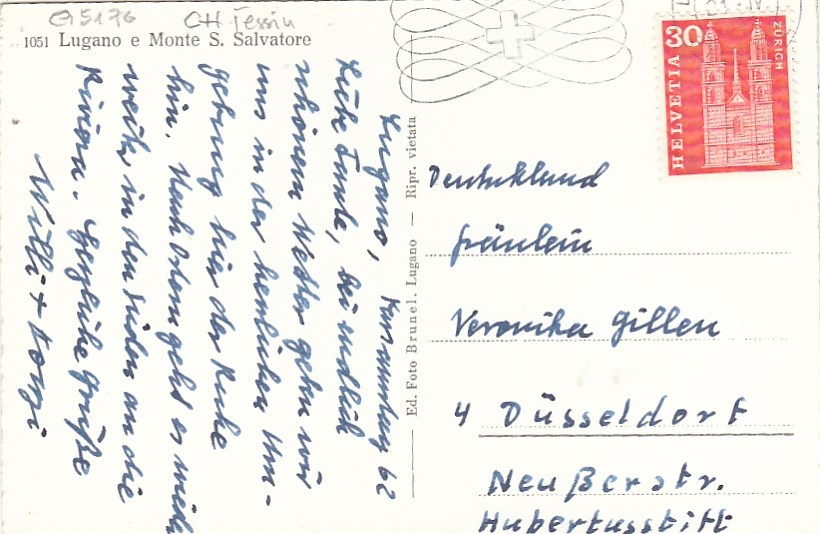 G5176 CH Tessin
1051 Lugano e Monte S. Salvatore
HELVETIA
30
ZÜRICH
Lugano, Karsamstag 62
Liebe Tante, bei endlich
schönem Wetter geben wir
uns in der herrlichen Um-
gebung hier der Ruhe
hin. Nach Ostern geht es wieder
weiter in den Süden an die
Riviera. Herzliche Grüße
Willi +
Ed. Foto Brunel. Lugano — Ripr. vietata
Deutschland
Fräulein
Veronika Gillen
4 Düsseldorf
Neußerstr.
Hubertusstift